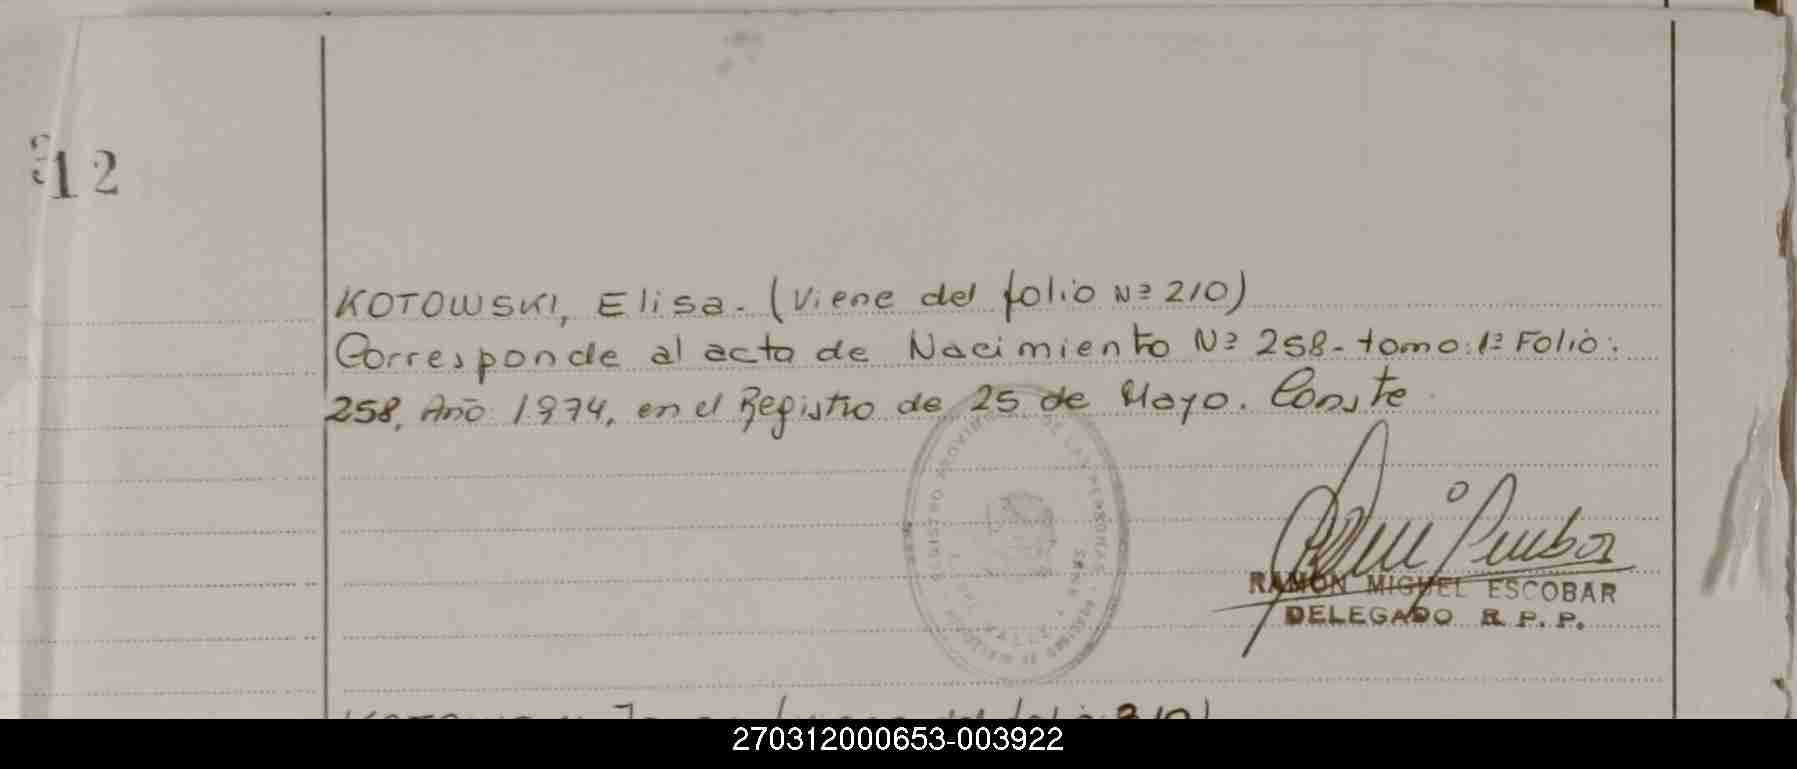 312
KOTOWSKI, Elisa.- (Viene del folio Nº 210)
Corresponde al acta de Nacimiento Nº 258- tomo: 1º Folio:
258, Año: 1974, en el Registro de 25 de Mayo. Conste.
REGISTRO PROVIN DE LAS PERSONAS
RAMON MIGUEL ESCOBAR
DELEGADO R. P. P.
270312000653-003922